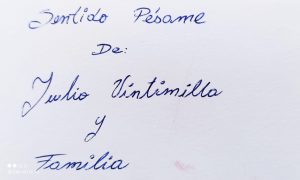 Sentido Pésame
De:
Julio Vintimilla
y
Familia